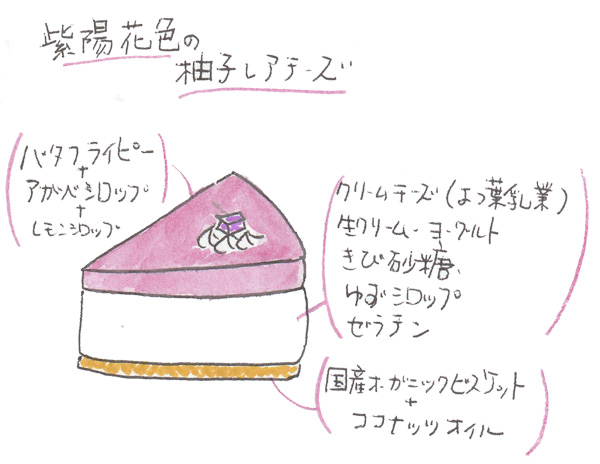 紫陽花色の
柚子レアチーズ
バタフライピー
+
アガベシロップ
+
レモンシロップ
クリームチーズ(よつ葉乳業)
生クリーム・ヨーグルト
きび砂糖、
ゆずシロップ
ゼラチン
国産オーガニックビスケット
+
ココナッツオイル